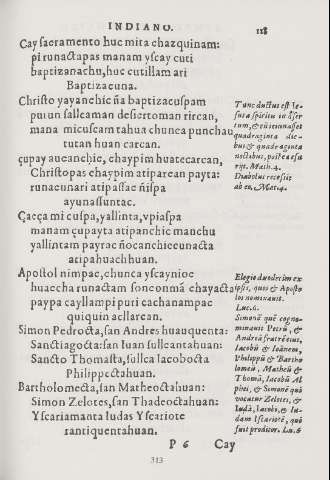 INDIANO. 118
Cay sacramento huc mita chazquinam:
pi runactapas manam yscay cuti
baptizanachu, huc cutillam ari
Baptizacuna.
Christo yayanchic ña baptizacuspam
puiun sallcaman desiertoman rircan,
mana micuscam tahua chunca punchau
tutan huan carcan.
çupay aucanchic, chaypim huatecarcan,
Christopas chaypim atiparcan payta:
runacunari atipassac ñispa
ayunassuntac.
Çacça mi cuspa, yallinta, vpiaspa
manam çupayta atipanchic manchu
yallintam payrac ñocanchiccunacta
atipahuachhuan.
Apostol nimpac, chunca yscaynioc
huaccha runactam sonconmá chayacta
paypa cayllampi puri cachanampac
quiquin acllarcan.
Simon Pedrocta, san Andres huauquenta:
Sanctiagocta: san Iuan sullcantahuan:
Sancto Thomasta, sullca Iacobocta
Philippectahuan.
Bartholomecta, san Matheoctahuan:
Simon Zelotes, san Thadeoctahuan:
Yscariamanta Iudas Yscariote
rantiquentahuan.
Tunc ductus est Ie-
sus a spiritu in deser
tum, & cũ ieiunasset
quadraginta die-
bus & quadraginta
noctibus, postea esu
rijt. Math. 4.
Diabolus recessit
ab eo, Mat. 4.
Elegit duodecim ex
ipsis, quos & Aposto
los nominauit.
Luc. 6.
Simonẽ quẽ cogno-
minauit Petrũ, &
Andreã fratrẽ eius,
Iacobũ & Ioãnem,
Philippũ & Bartho
lomeũ, Matheũ &
Thomã, Iacobũ Al
phei, & Simonẽ qui
vocatur Zelotes, &
Iudã, Iacobi, & Iu-
dam Iscariotẽ, qui
fuit proditor. Lu. 6
P 6 Cay
313